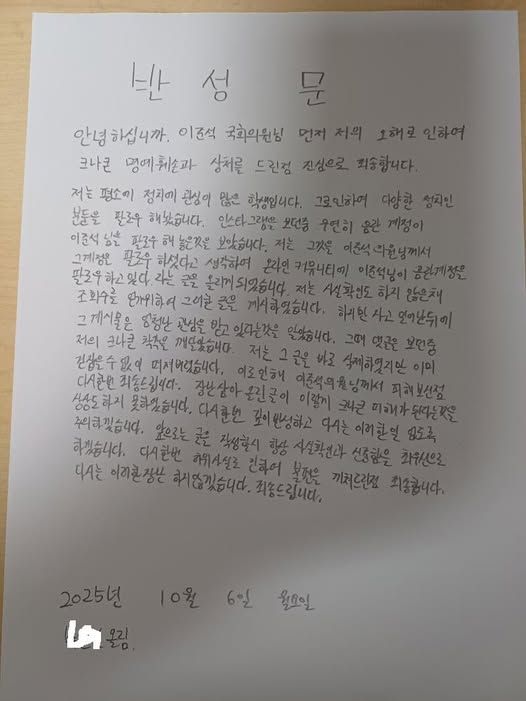 반 성 문
안녕하십니까. 이준석 국회의원님 먼저 저의 오해로 인하여
크나큰 명예훼손과 상처를 드린점 진심으로 죄송합니다.
저는 평소에 정치에 관심이 많은 학생입니다. 그로인하여 다양한 정치인
분들을 팔로우 해놨습니다. 인스타그램을 보던중 우연히 음란 계정이
이준석 님을 팔로우 해 놓은것을 보았습니다. 저는 그것을 이준석 의원님께서
그계정을 팔로우 하셨다고 생각하여 온라인 커뮤니티에 이준석님이 음란계정을
팔로우하고 있다. 라는 글을 올리게 되었습니다. 저는 사실확인도 하지 않은채
조회수를 얻기위하여 그러한 글을 게시하였습니다. 하지만 자고 일어난뒤에
그 게시물은 엄청난 관심을 받고 있다는것을 알았습니다. 그때 댓글을 보던중
저의 크나큰 착오를 깨달았습니다. 저는 그 글을 바로 삭제하였지만 이미
걷잡을수 없이 퍼져버렸습니다. 이로 인해 이준석 의원님께서 피해보신점
다시한번 죄송드립니다. 장난삼아 올린글이 이렇게 크나큰 피해가 된다는것을
상상도하지 못하였습니다. 다시한번 깊이반성하고 다시는 이러한일 없도록
주의하겠습니다. 앞으로는 글을 작성할시 항상 사실확인과 신중함을 최우선으로
하겠습니다. 다시한번 허위사실로 인하여 불편을 끼쳐드린점 죄송합니다.
다시는 이러한장난 하지않겠습니다. 죄송드립니다.
2025년 10월 6일 월요일
올림.